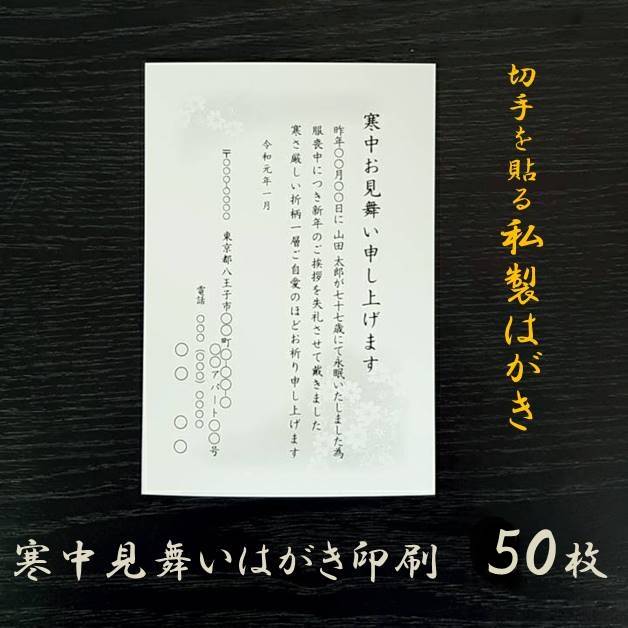 切手を貼る私製はがき
寒中お見舞い申し上げます
昨年〇〇月〇〇日に 山田 太郎が七十七歳にて永眠いたしました為
服喪中につき新年のご挨拶を失礼させて戴きました
寒さ厳しい折柄一層ご自愛のほどお祈り申し上げます
令和元年一月
〒〇〇〇-〇〇〇〇 東京都八王子市〇〇町〇-〇-〇
〇〇アパート〇〇号
電話 〇〇〇(〇〇〇)〇〇〇〇
〇〇 〇〇
寒中見舞いはがき印刷 50枚